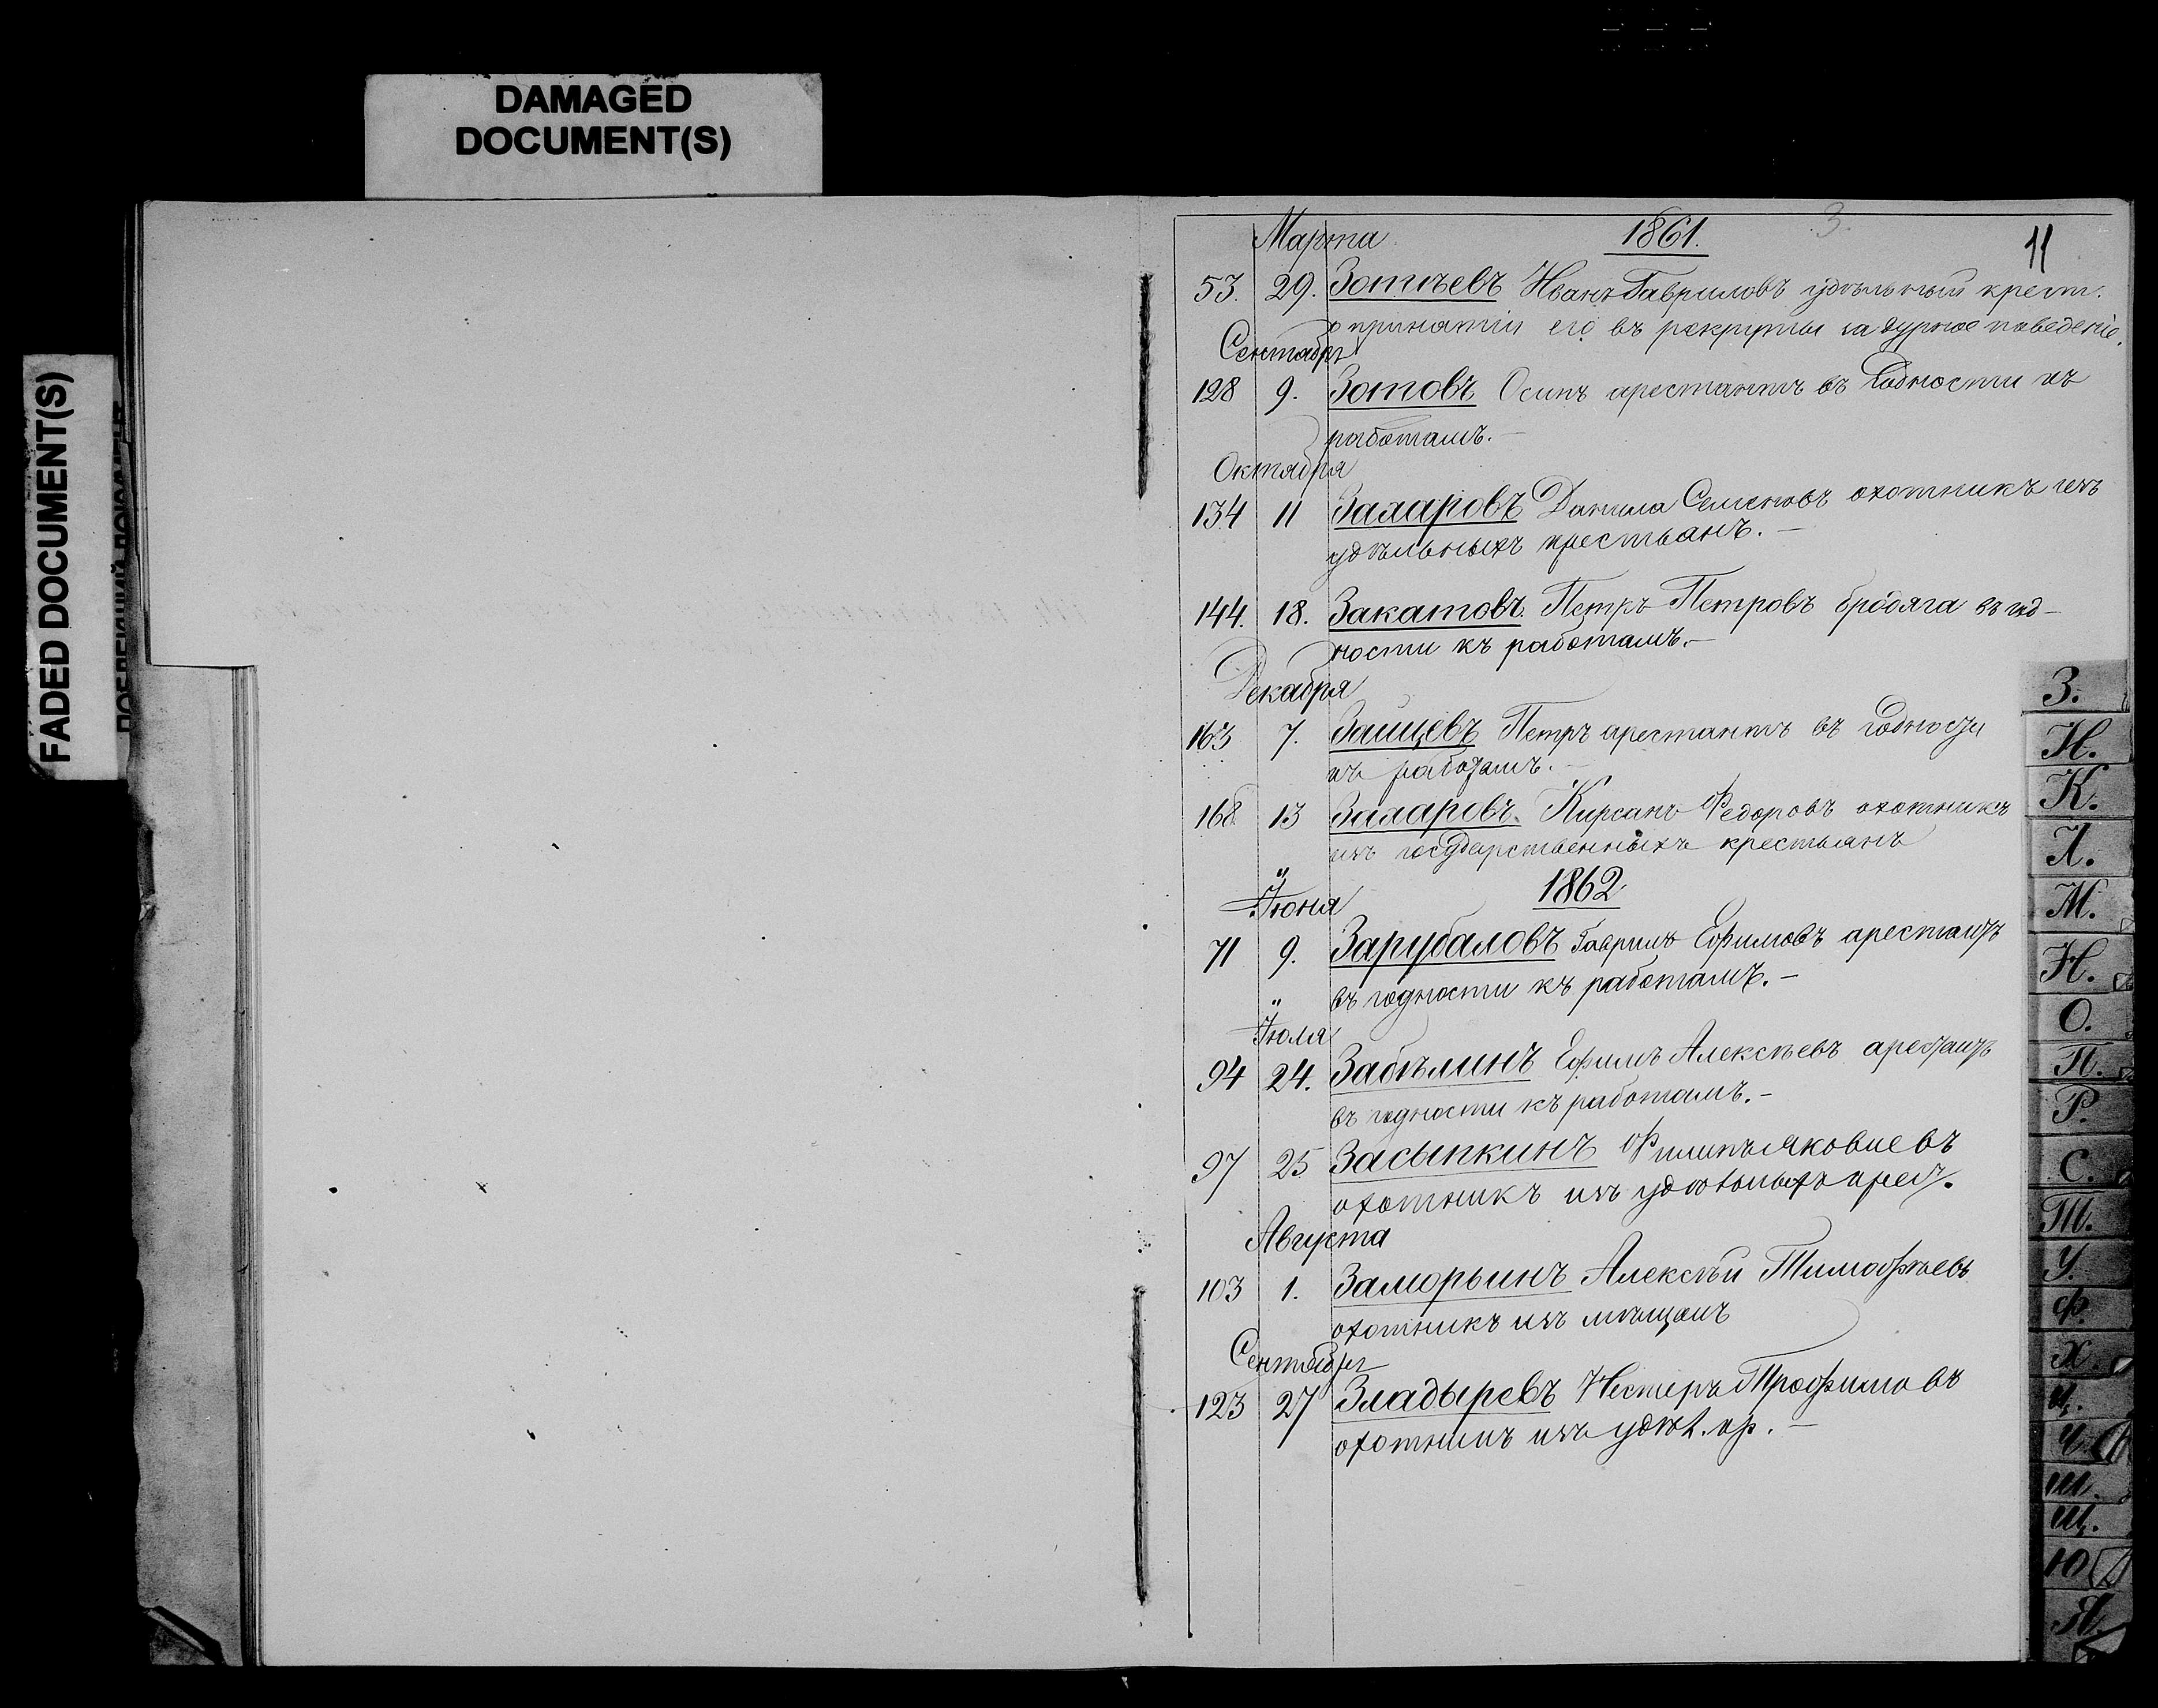 DAMAGED
DOCUMENT(S)
FADED DOCUMENT(S)
3.
11
Марта 1861.
53. 29. Зотѣевъ Иванъ Гавриловъ удѣльный крест.
о принятіи его въ рекруты за дурное поведеніе.
Сентября
128 9. Зотовъ Осипъ арестантъ въ годности къ
работамъ.-
Октября
134 11 Захаровъ Данила Семеновъ охотникъ изъ
удѣльныхъ крестьянъ.-
144. 18. Закатовъ. Петръ Петровъ бродяга въ год-
ности къ работамъ.-
Декабря
163 7. Зайцевъ Петръ арестантъ въ годности
къ работамъ.-
168 13 Захаровъ. Кирсанъ Федоровъ охотникъ
изъ государственныхъ крестьянъ
" 1862
Іюня
71 9. Зарубаловъ Гаврилъ Ефимовъ арестантъ
въ годности къ работамъ.-
"
Іюля
94 24. Забѣлинъ Ефимъ Алексѣевъ арестантъ
въ годности къ работамъ.-
97 25 Засыпкинъ Филипъ Яковлевъ
охотникъ изъ удѣльныхъ крест.
Августа
103 1. Заморьинъ Алексѣй Тимофѣевъ
охотникъ изъ мѣщанъ
Сентября
123 27 Зладыревъ Нестеръ Трофимовъ
охотникъ изъ удѣл. кр.-
З.
И.
К.
Л.
М.
Н.
О.
П.
Р.
С.
Т.
У.
Ф.
Х.
Ц.
Ч.
Ш.
Щ.
Ю
Я.